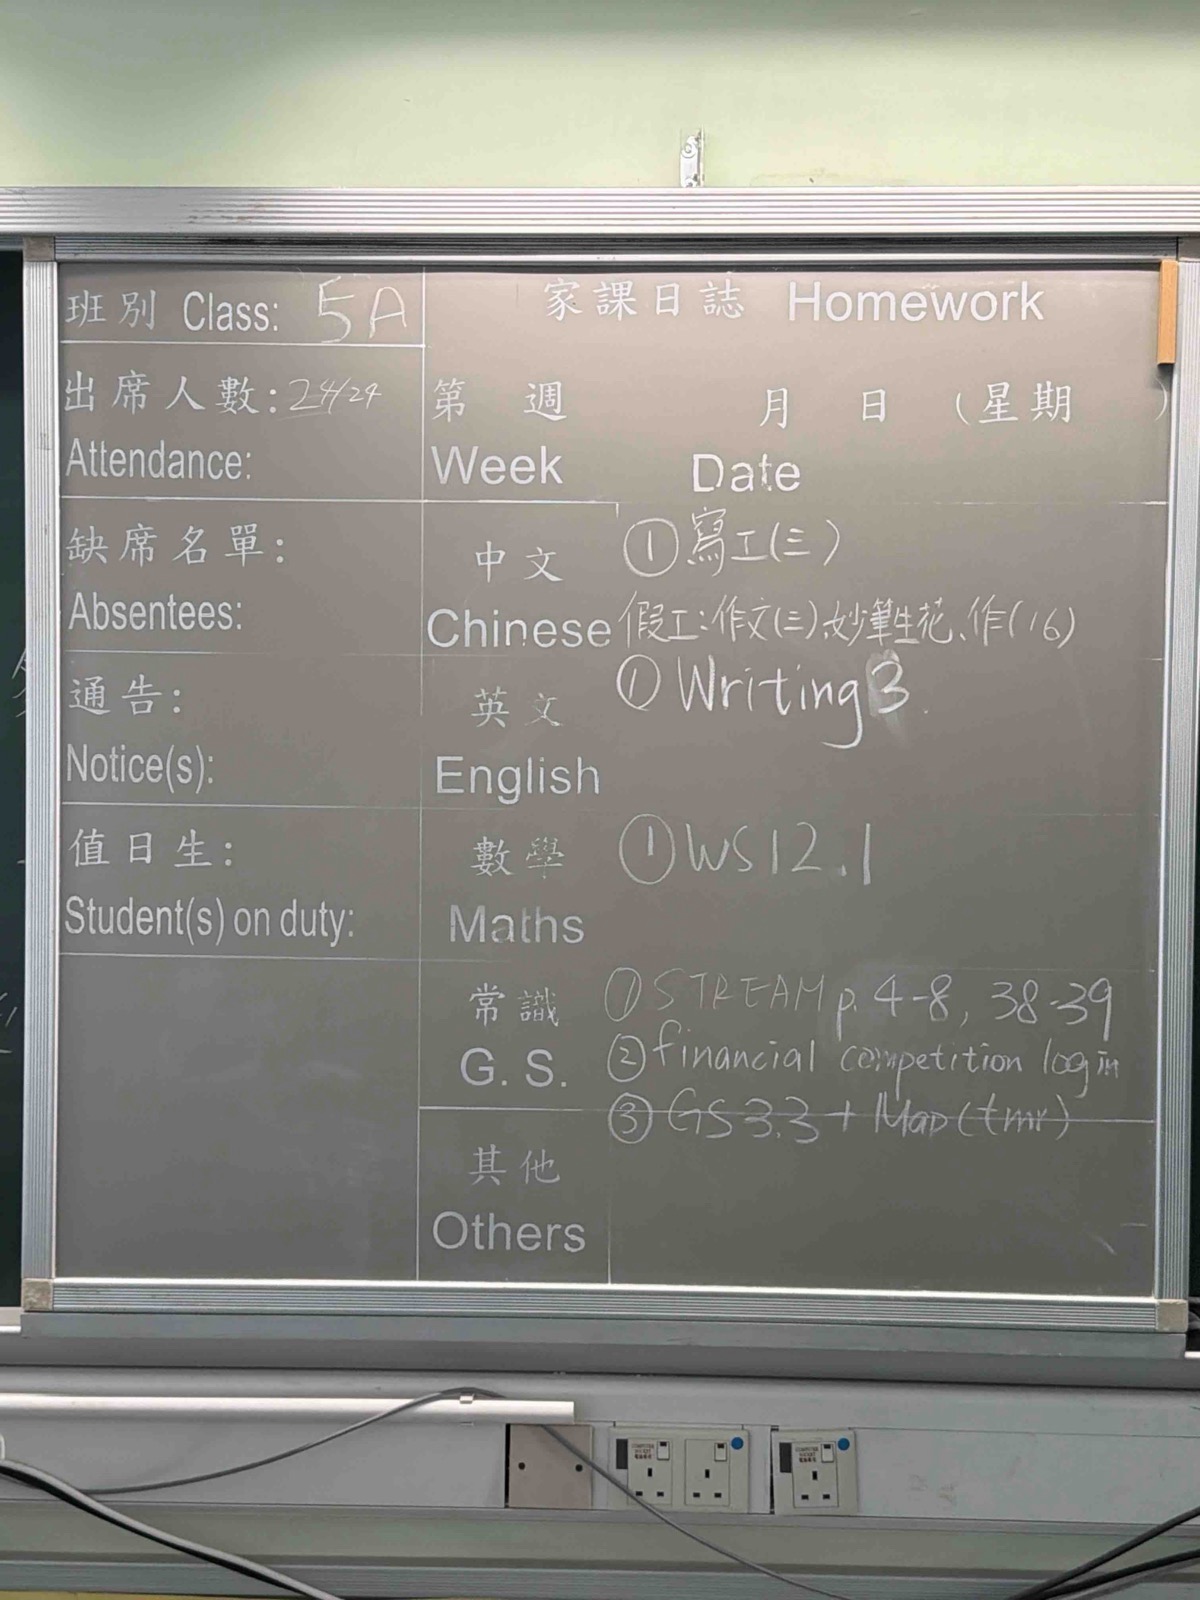 班別 Class: 5A
出席人數: 24/24
Attendance:
缺席名單:
Absentees:
通告:
Notice(s):
值日生:
Student(s) on duty:
家課日誌 Homework
第 週 月 日 (星期 )
Week Date
中文 ①寫工(三)
Chinese 假工:作文(三)、妙筆生花、作(16)
英文 ① Writing 3
English
數學 ① WS12.1
Maths
常識 ① STREAM p. 4-8, 38-39
G. S. ② financial competition log in
③ GS 3.3 + Map (tmr)
其他
Others
COMPUTER
SOCKET
COMPUTER
SOCKET